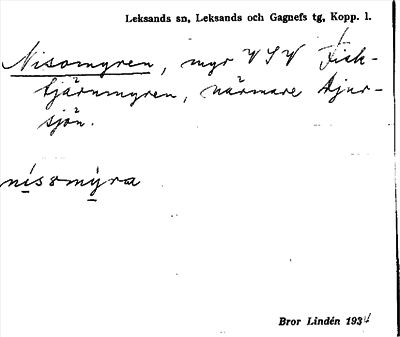 Leksands sn, Leksands och Gagnefs tg, Kopp. l.
Nisomyren, myr VSV Fisk-
tjärnmyren, närmare Djur-
sjön.
nísomỳra
Bror Lindén 1934